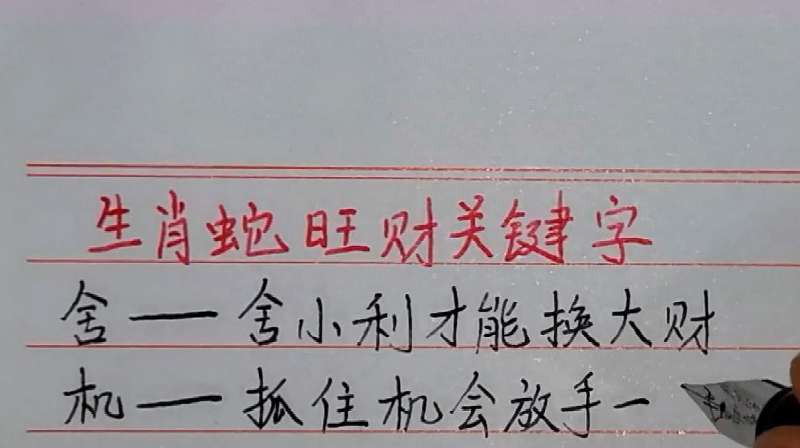 生肖蛇旺财关键字
舍——舍小利才能换大财
机——抓住机会放手一